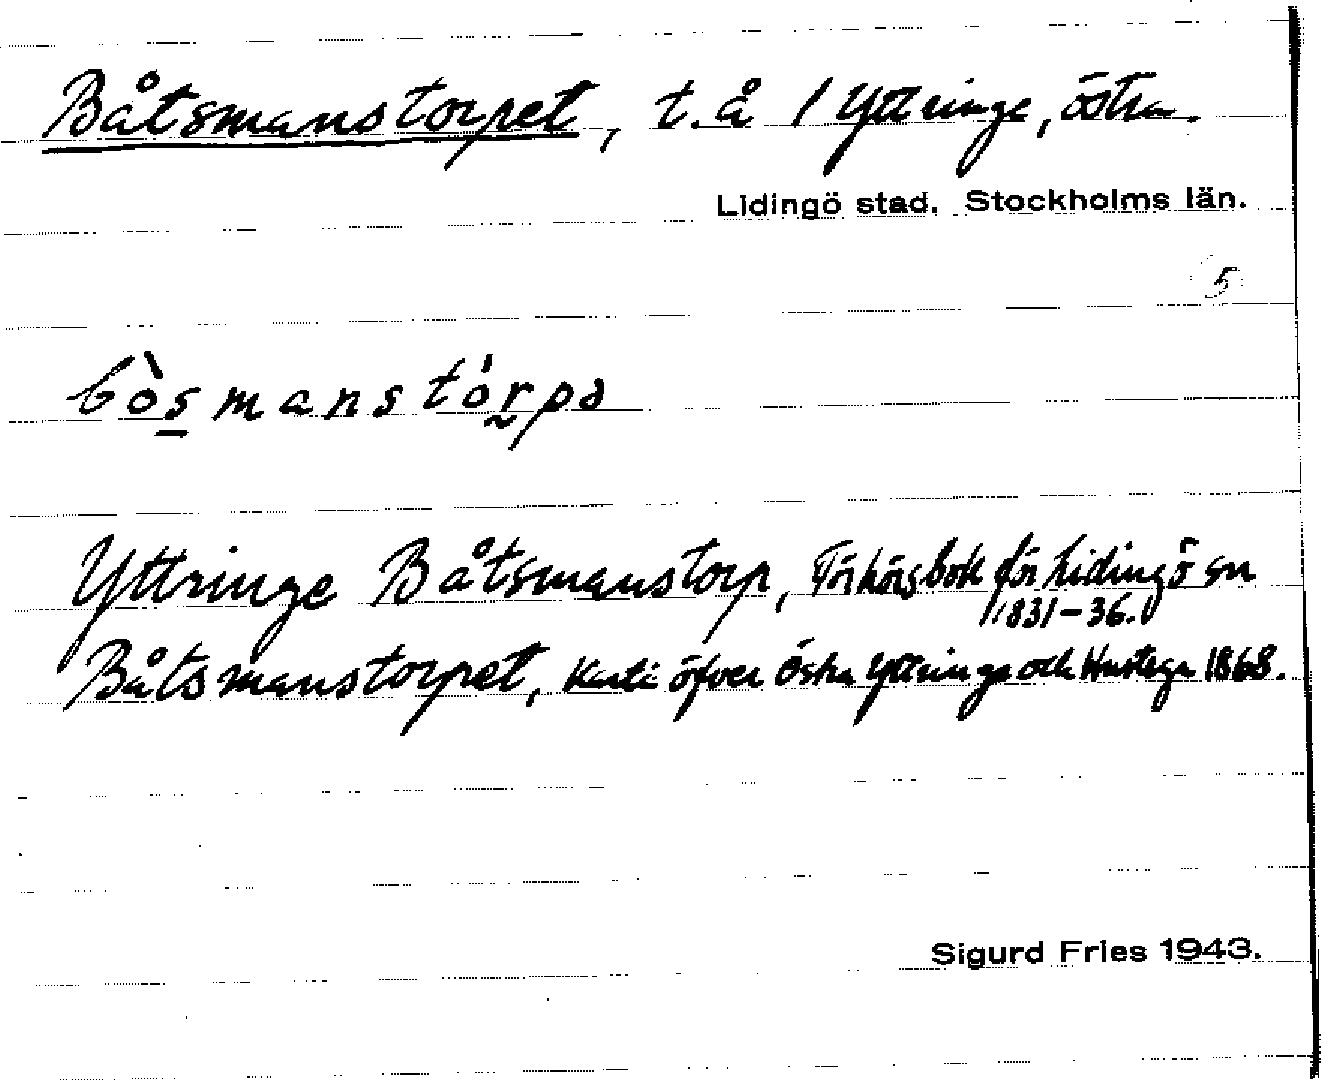 Båtsmanstorpet, t. å / Yttringe, östra.
Lidingö stad, Stockholms län.
5
bòsmanstórpə
Yttringe Båtsmanstorp, Förhörsbok för Lidingö sn
1831-36.
Båtsmanstorpet, Karta öfver Östra Yttringe och Hustega 1868.
Sigurd Fries 1943.